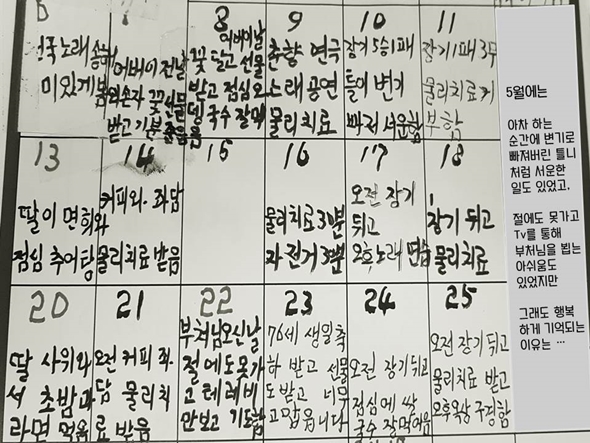 8
9
10
11
전국노래
미있게 봄
어버이 전날
외손자 꽃 선물
받고 기분 좋음
어버이날
꽃 달고 선물
받고 점심 오
뎅 국수 잘먹
음
춘향 연극
노래 공연
물리치료
장기 5승1패
틀이 변기
빠저 서운함
장기 1패 3무
물리치료
부함
13
14
15
16
17
18
딸이 면회와
점심 추어탕
커피와. 좌담
물리치료 받음
물리치료 3분
자전거 3분
오전 장기
뒤고
오후노래 연습
장기 뒤고
물리치료
20
21
22
23
24
25
딸 사위와
서 초밥과
라면 먹음
오전 커피 좌
담 물리치
료 받음
부처님오신날
절에도못가
고 테레비
만보고 기도함
76세 생일축
하 받고 선물
도받고 너무
고맙습니다
오전 장기뒤고
점심에 쌀
국수 잘먹어음
오전 장기 뒤고
물리치료 받고
오후옥상 구경함
5월에는
아차 하는
순간에 변기로
빠져버린 틀니
처럼 서운한
일도 있었고.
절에도 못가고
Tv를 통해
부처님을 뵙는
아쉬움도
있었지만
그래도 행복
하게 기억되는
이유는 …